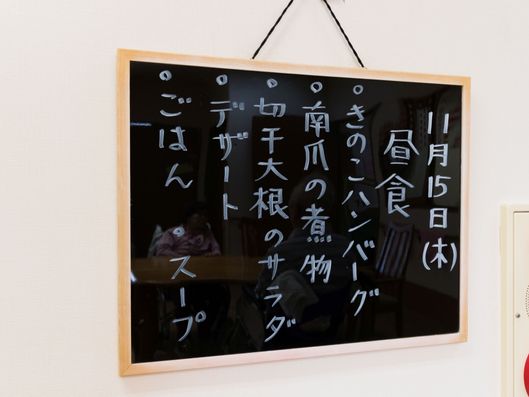 11月15日(木)
昼食
○きのこハンバーグ
○南爪の煮物
○切干大根のサラダ
○デザート
○ごはん ○スープ